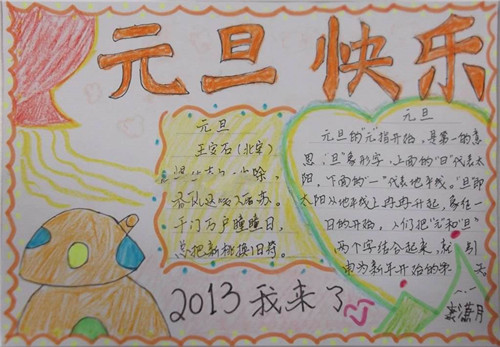 元旦快乐
元旦
王安石(北宋)
爆竹声中一岁除,
春风送暖入屠苏。
千门万户曈曈日,
总把新桃换旧符。
元旦
元旦的“元”指开始,是第一的意
思,“旦”象形字,上面的“日”代表太
阳,下面的“一”代表地平线。“旦”即
太阳从地平线上冉冉升起,象征一
日的开始,人们把“元”和“旦”
两个字结合起来,就引
申为新年开始的第一天
2013我来了
月